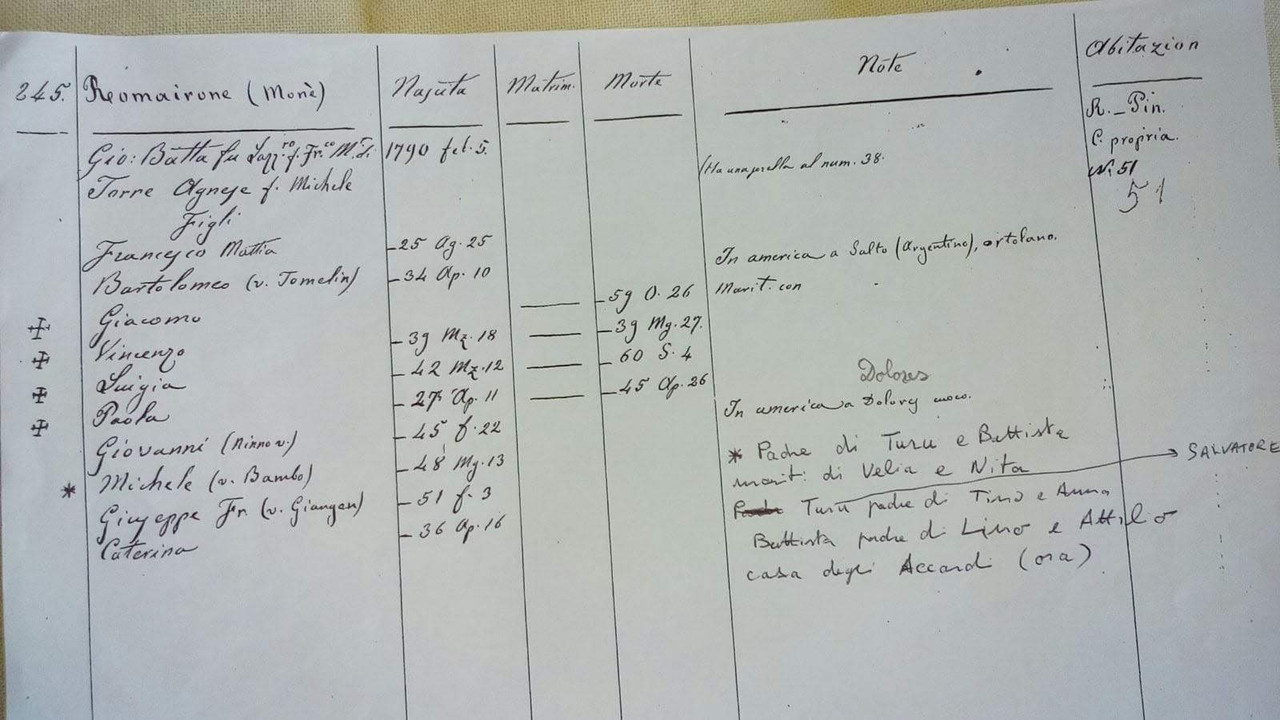 245. Reomairone (Morië) Nascita Matrim. Morte Note Abitazion
Gio: Batta fu Lazz.ro f. Fr.co M. 1790 feb. 5. Ha una sorella al num. 38. R. Pin.
Torre Agnese f. Michele C. propria.
N. 51
51
Figli
Francesco Mattia 25 Ag. 25 In america a Salto (Argentino), ortolano.
Bartolomeo (v. Tomelin) 34 Ap. 10 Marit. con
Giacomo 59 O. 26
Vincenzo 39 Mz. 18 39 Mg. 27.
Luigia 42 Mz. 12 60 S. 4
Dolores
Paola 27 Ap. 11 45 Ap. 26 In america a Dolory cuoco.
Giovanni (Ninno v.) 45 f. 22
* Padre di Turu e Battista
* Michele (v. Bambo) 48 Mg. 13
mariti di Velia e Nita → SALVATORE
Giuseppe Fr (v. Giangen) 51 f. 3
Turu padre di Tino e Anna
Caterina 36 Ap. 16
Battista padre di Lino e Attilio
casa degli Accardi (ora)